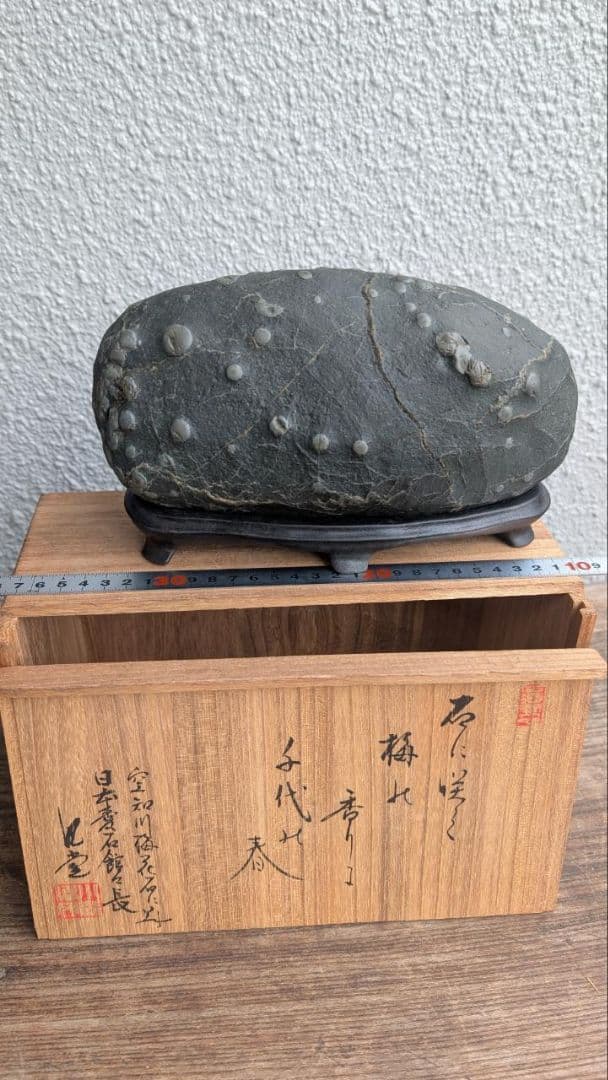 石に咲く
梅の
香りに
千代の
春
空知川梅花石に
日本愛石館々長
7 6 5 4 3 2 1 30 9 8 7 6 5 4 3 2 1 20 9 8 7 6 5 4 3 2 1 10 9